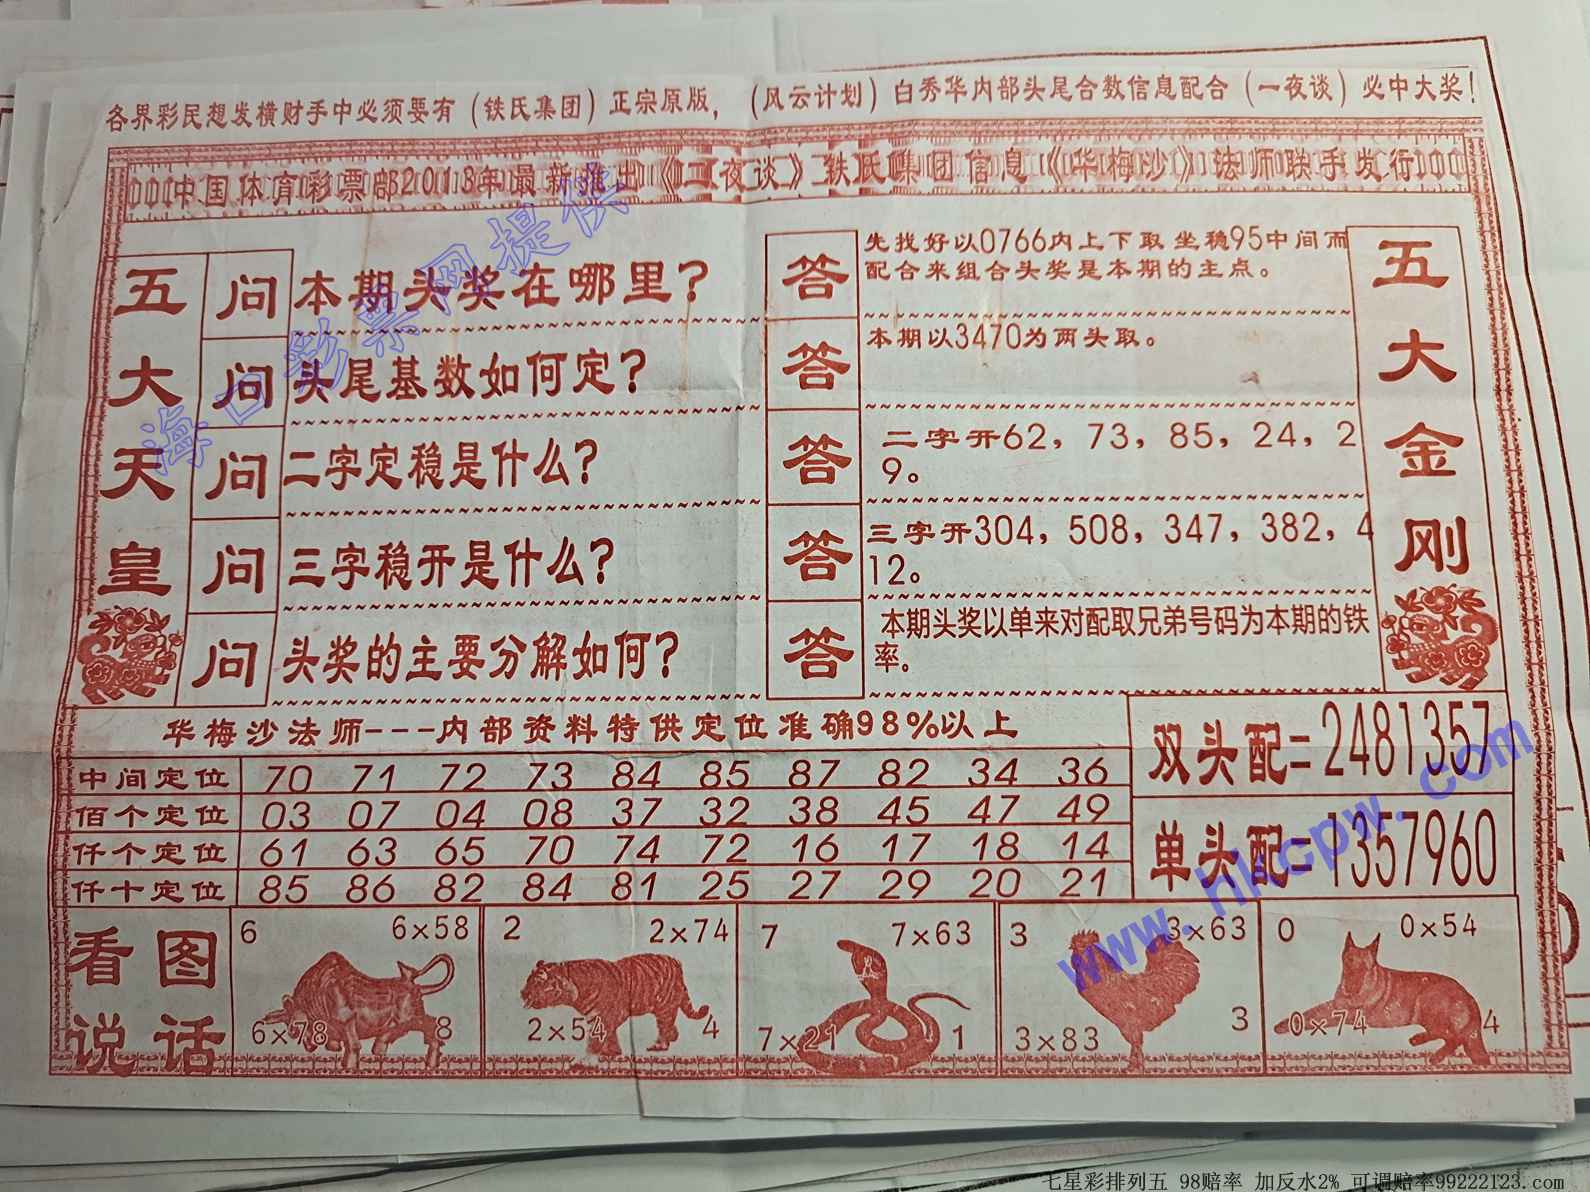 各界彩民想发横财手中必须要有（铁氏集团）正宗原版，（风云计划）白秀华内部头尾合数信息配合（一夜谈）必中大奖！
中国体育彩票部2013年最新推出《二夜谈》铁氏集团信息《华梅沙》法师联手发行
五大天皇
问 本期头奖在哪里？
答 先找好以0766内上下取 坐稳95中间而
配合来组合头奖是本期的主点。
问 头尾基数如何定？
答 本期以3470为两头取。
问 二字定稳是什么？
答 二字开62，73，85，24，2
9。
问 三字稳开是什么？
答 三字开304，508，347，382，4
12。
问 头奖的主要分解如何？
答 本期头奖以单来对配取兄弟号码为本期的铁
率。
五大金刚
华梅沙法师---内部资料特供定位准确98%以上
中间定位 70 71 72 73 84 85 87 82 34 36
佰个定位 03 07 04 08 37 32 38 45 47 49
仟个定位 61 63 65 70 74 72 16 17 18 14
仟十定位 85 86 82 84 81 25 27 29 20 21
双头配=2481357
单头配=1357960
看图
说话
6 6×58
6×78 8
2 2×74
2×54 4
7 7×63
7×21 1
3 3×63
3×83 3
0 0×54
0×74 4
海口彩票网提供
www.hkcpw.com
七星彩排列五 98赔率 加反水2% 可调赔率99222123.com